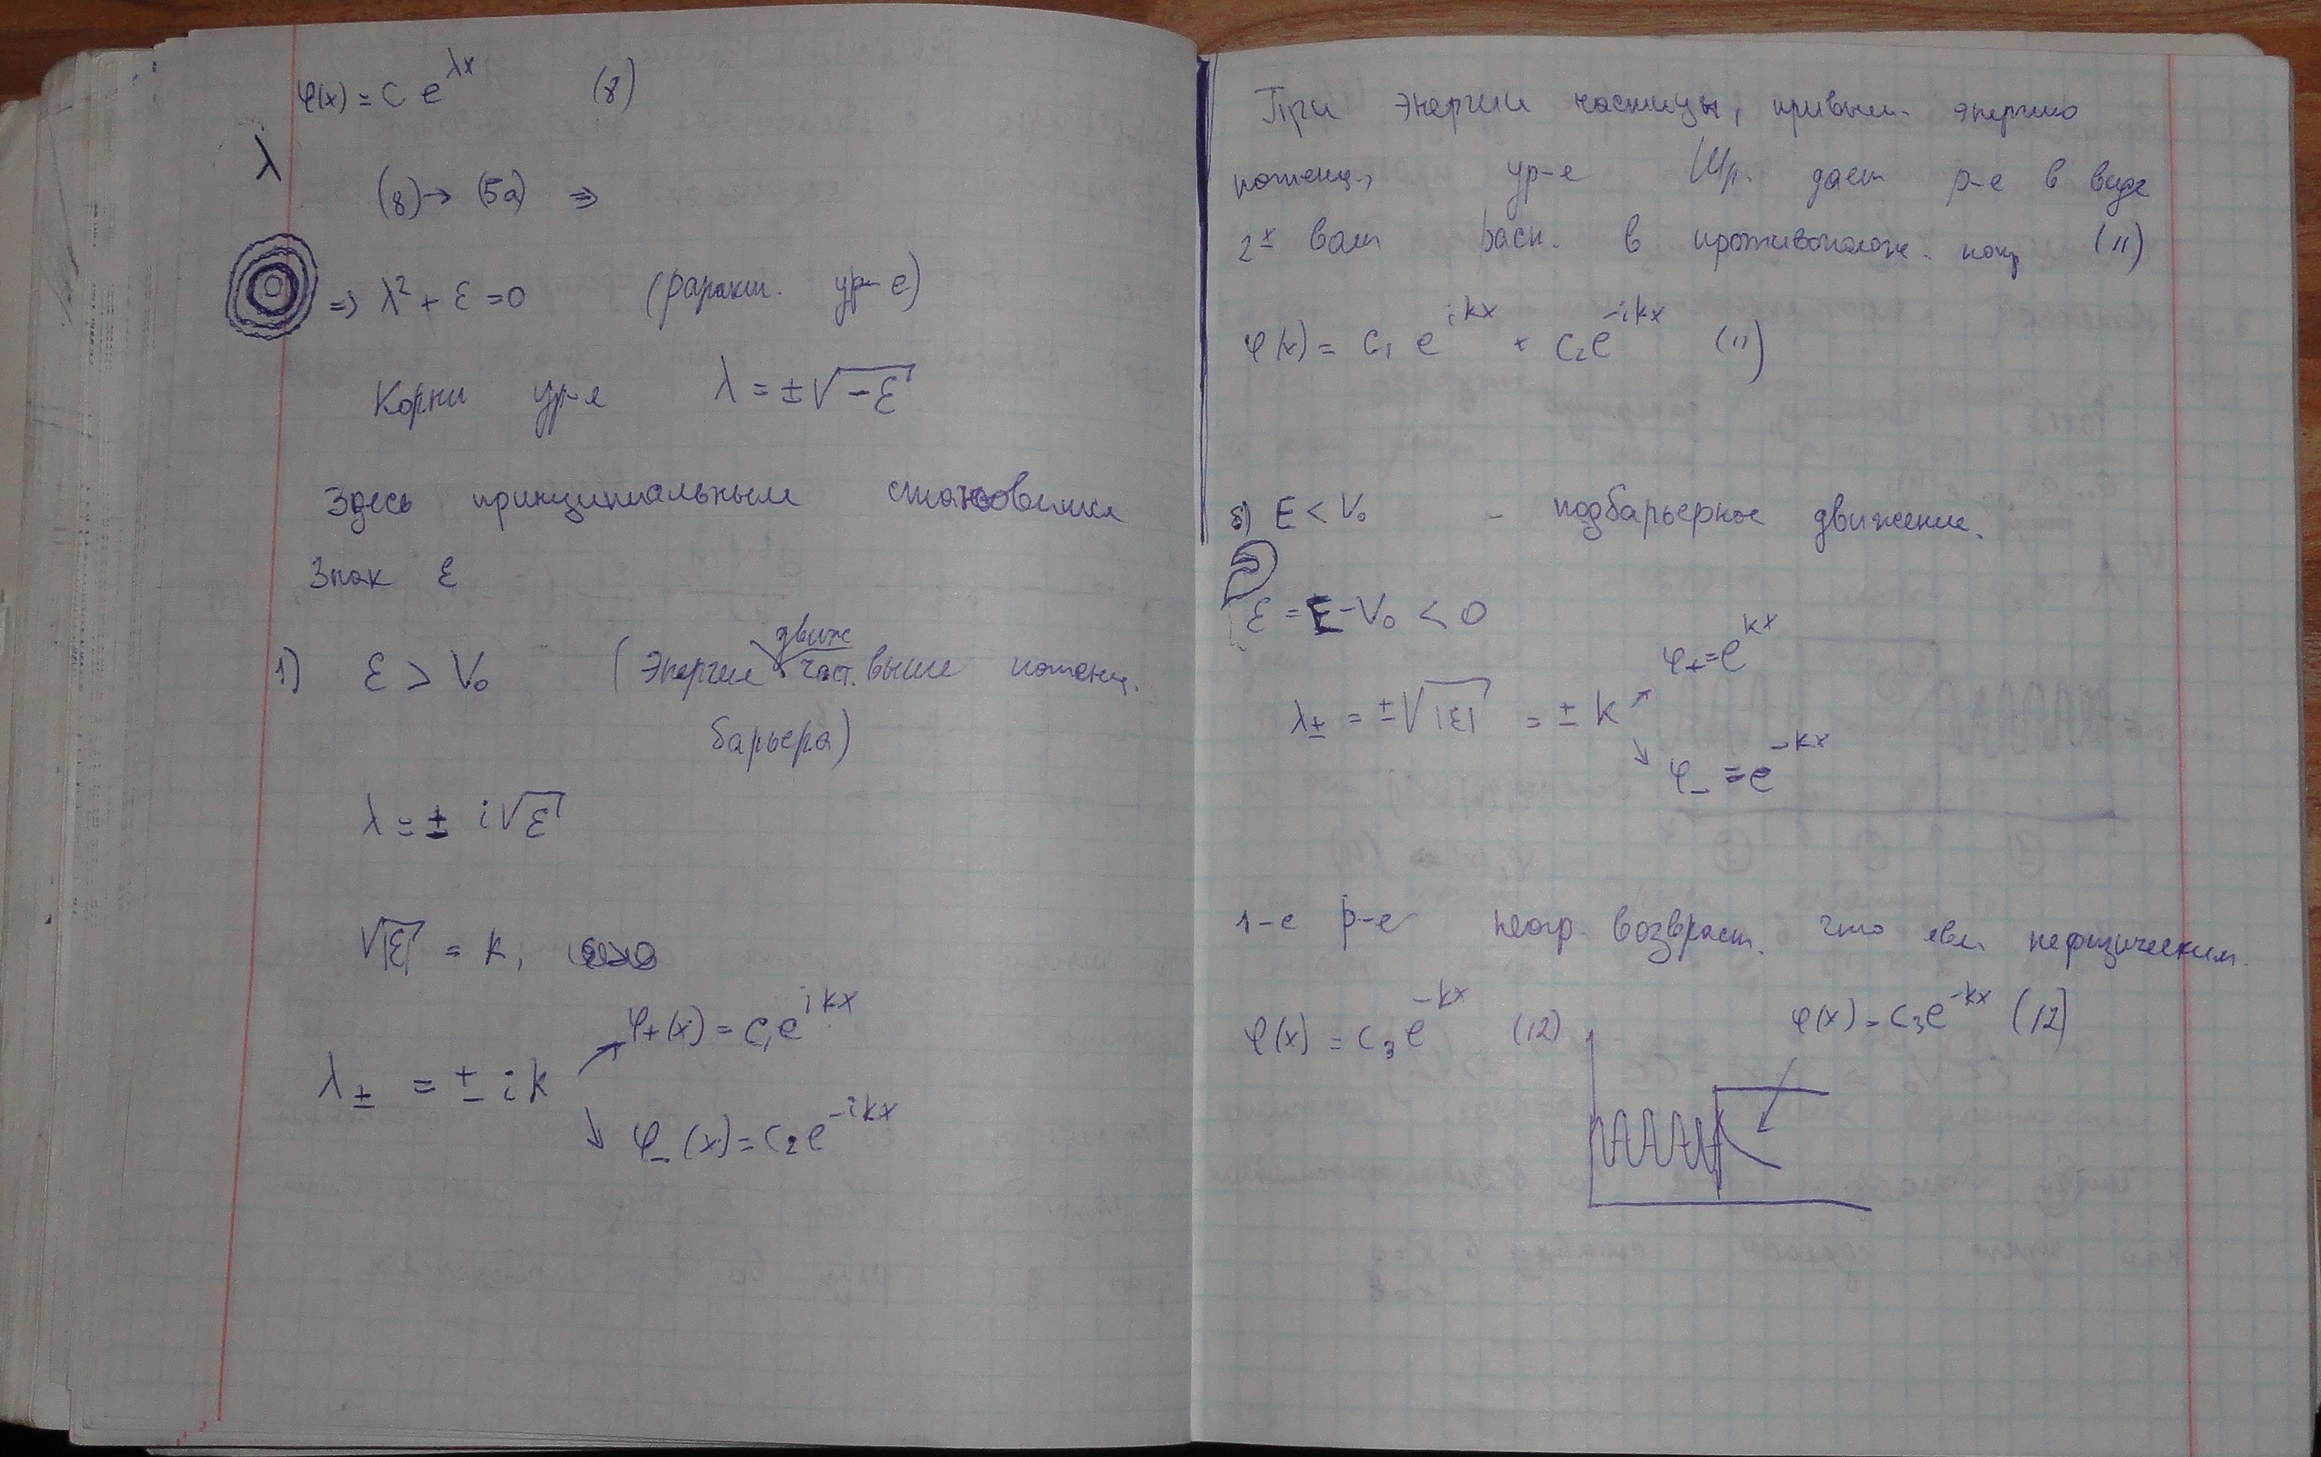 φ(x) = C e^{λx} (8)
λ
(8) → (5a) ⇒
⇒ λ² + ε = 0 (характ. ур-е)
Корни ур-я λ = ±√-ε
Здесь принципиальным становится
Знак ε
1) ε > V₀ (Энергия движ част. выше потенц.
барьера)
λ = ± i√ε
√|ε| = k,
λ± = ± ik
φ₊(x) = C₁e^{ikx}
φ₋(x) = C₂e^{-ikx}
При энергии частицы, привыш. энергию
потенц., ур-е Шр. дает р-е в виде
2х волн расп. в противополож. напр (11)
φ(x) = C₁ e^{ikx} + C₂e^{-ikx} (11)
б) E < V₀ - подбарьерное движение.
ε = E - V₀ < 0
λ± = ±√|ε| = ± k
φ₊ = e^{kx}
φ₋ = e^{-kx}
1-е р-е неогр. возвраст. что явл нефизическим.
φ(x) = C₃e^{-kx} (12)
φ(x) = C₃e^{-kx} (12)